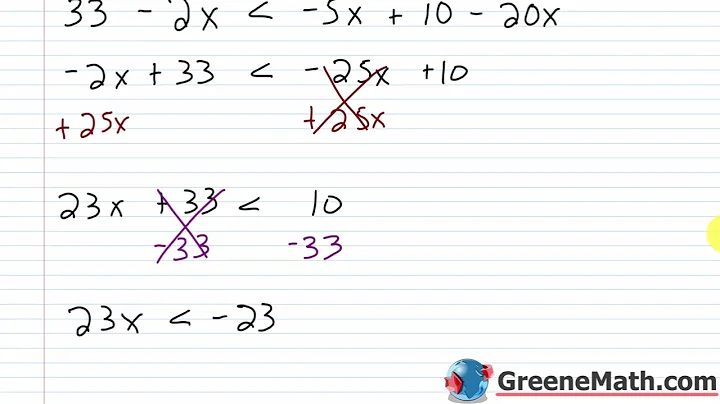 33 - 2x < -5x + 10 - 20x
-2x + 33 < -25x +10
+25x +25x
23x +33 < 10
-33 -33
23x < -23
GreeneMath.com